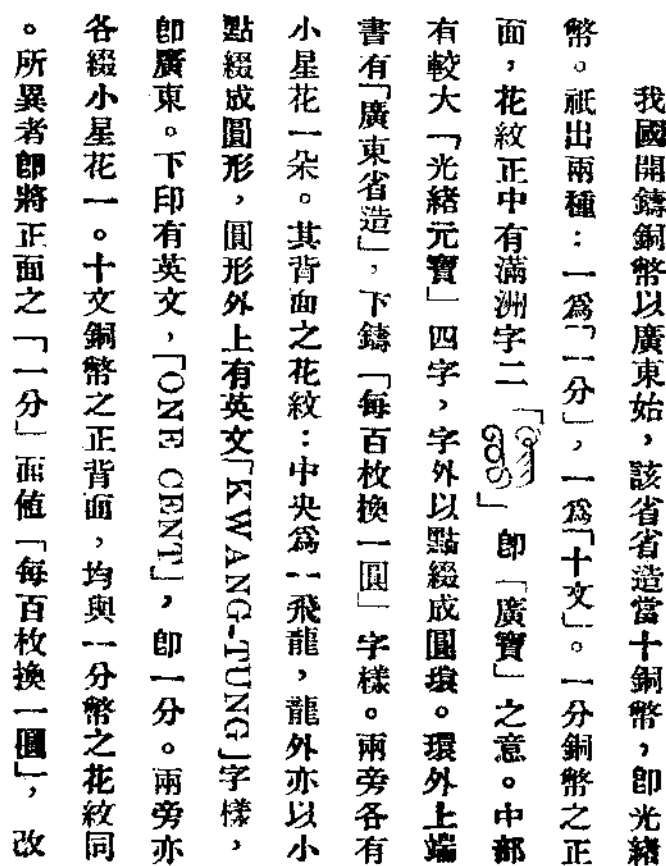 我國開鑄銅幣以廣東始，該省省造當十銅幣，卽光緖
幣。祇出兩種：一爲「一分」，一爲「十文」。一分銅幣之正
面，花紋正中有滿洲字二「」卽「廣寶」之意。中部
有較大「光緖元寶」四字，字外以點綴成圓環。環外上端
書有「廣東省造」，下鑄「每百枚換一圓」字樣。兩旁各有
小星花一朵。其背面之花紋：中央爲一飛龍，龍外亦以小
點綴成圓形，圓形外上有英文「KWANG-TUNG」字樣，
卽廣東。下印有英文，「ONE CENT」，卽一分。兩旁亦
各綴小星花一。十文銅幣之正背面，均與一分幣之花紋同
。所異者卽將正面之「一分」面值「每百枚換一圓」，改